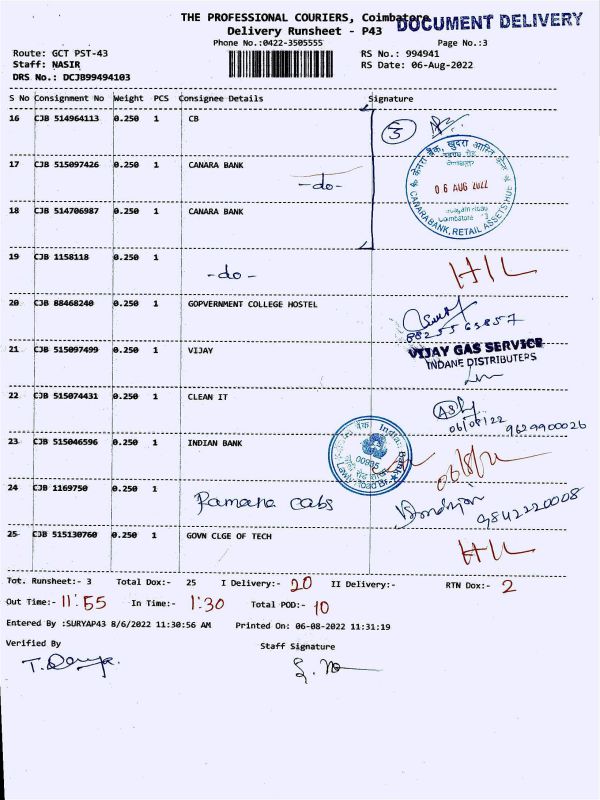 THE PROFESSIONAL COURIERS, Coimbatore
DOCUMENT DELIVERY
Delivery Runsheet - P43
Phone No.:0422-3505555
Page No.:3
Route: GCT PST-43
RS No.: 994941
Staff: NASIR
RS Date: 06-Aug-2022
DRS No.: DCJB99494103
S No Consignment No Weight PCS Consignee Details Signature
16 CJB 514964113 0.250 1 CB
5
17 CJB 515097426 0.250 1 CANARA BANK
-do-
06 AUG 2022
CANARA BANK, RETAIL ASSETS HUB
18 CJB 514706987 0.250 1 CANARA BANK
19 CJB 1158118 0.250 1 -do-
20 CJB 88468240 0.250 1 GOPVERNMENT COLLEGE HOSTEL
21 CJB 515097499 0.250 1 VIJAY
VIJAY GAS SERVICE
INDANE DISTRIBUTERS
22 CJB 515074431 0.250 1 CLEAN IT
06/08/22 9629900026
23 CJB 515046596 0.250 1 INDIAN BANK
Lawly Road Br.
06/8/22
24 CJB 1169750 0.250 1 Ramana cabs
9842220008
25 CJB 515130760 0.250 1 GOVN CLGE OF TECH
Tot. Runsheet:- 3 Total Dox:- 25 I Delivery:- 20 II Delivery:- RTN Dox:- 2
Out Time:- 11:55 In Time:- 1:30 Total POD:- 10
Entered By :SURYAP43 8/6/2022 11:30:56 AM Printed On: 06-08-2022 11:31:19
Verified By
Staff Signature